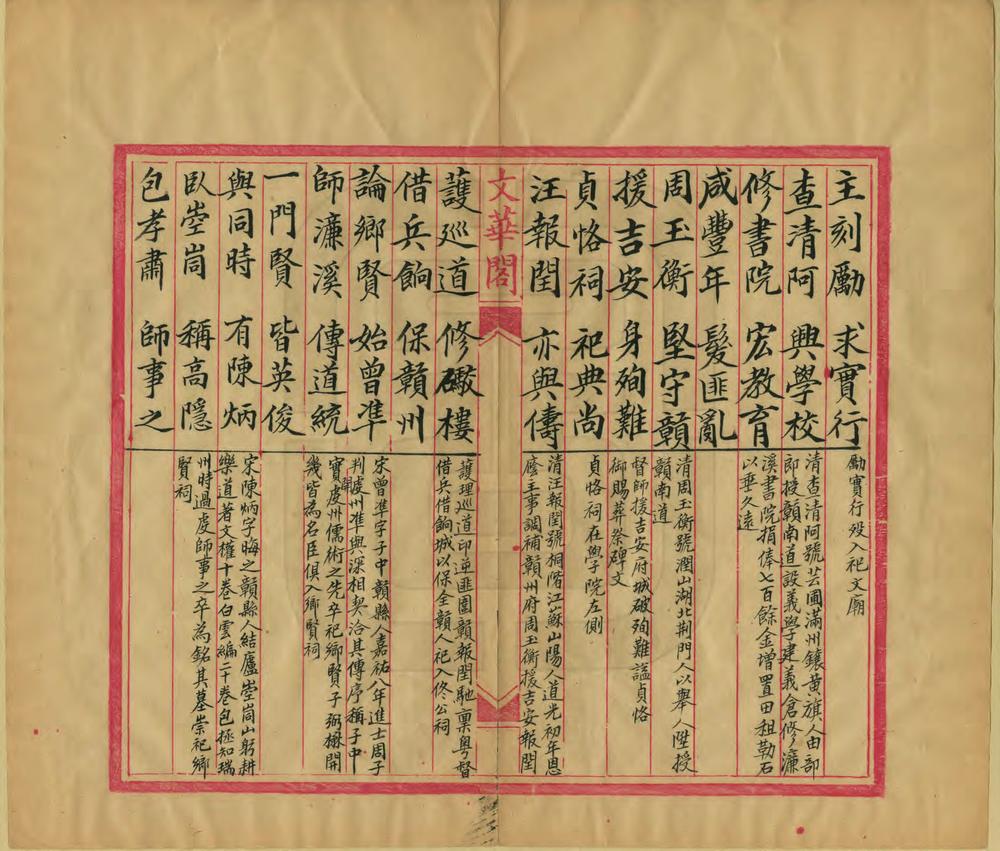 主刻勵 求實行
勵實行歿入祀文廟
查清阿 興學校
清查清阿號芸圃滿州鑲黃旗人由部
即授贛南道設義學建義倉修濂
修書院 宏教育
溪書院捐俸七百餘金增置田租勒石
以垂久遠
咸豐年 髮匪亂
周玉衡 堅守贛
清周玉衡號潤山湖北荆門人以舉人陞授
贛南道
援吉安 身殉難
督師援吉安府城破殉難諡貞恪
御賜葬祭碑文
貞恪祠 祀典尚
貞恪祠在學院左側
汪報閏 亦與儔
清汪報閏號桐階江蘇山陽人道光初年恩
廕主事調補贛州府周玉衡援吉安報閏
文華閣
護巡道 修礮樓
護理巡道印逆匪圍贛報閏馳禀粤督
借兵借餉城以保全贛人祀入佟公祠
借兵餉 保贛州
論鄉賢 始曾準
宋曾準字子中贛縣人嘉祐八年進士周子
判虔州準與深相契洽其傳序稱子中
師濂溪 傳道統
實開虔州儒術之先卒祀鄉賢子弼楙開
幾皆為名臣俱入鄉賢祠
一門賢 皆英俊
與同時 有陳炳
宋陳炳字晦之贛縣人結廬崆峒山躬耕
樂道著文權十卷白雲編二十卷包拯知瑞
臥崆峒 稱高隱
州時過虔師事之卒為銘其墓崇祀鄉
賢祠
包孝肅 師事之